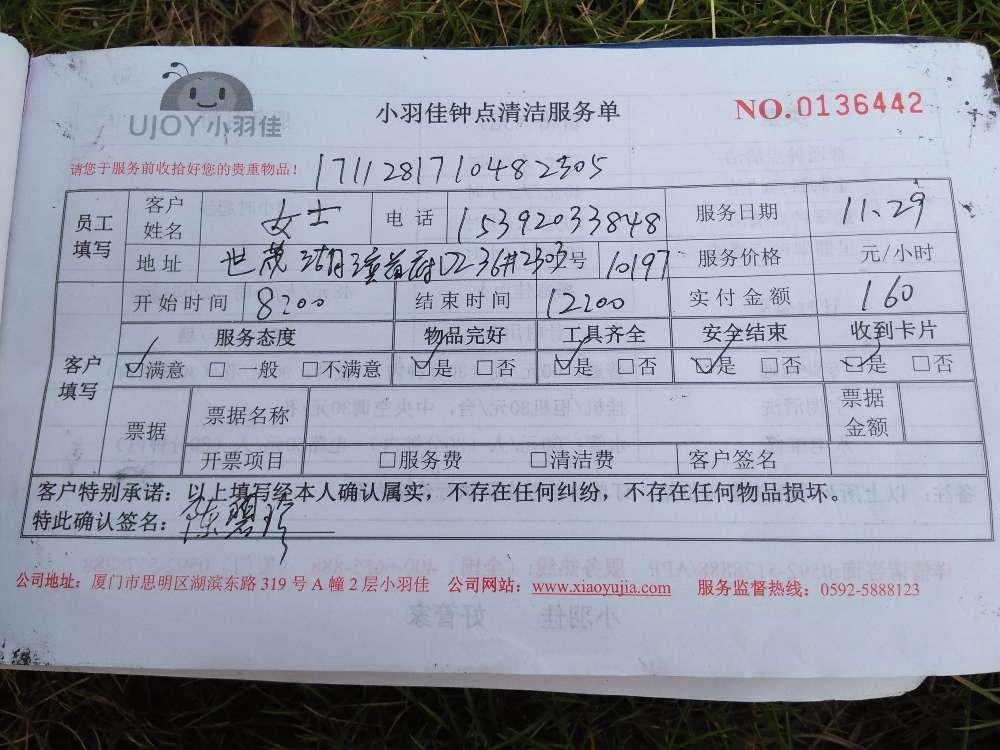 UJOY小羽佳
小羽佳钟点清洁服务单
NO.0136442
请您于服务前收拾好您的贵重物品！
员工填写 客户姓名 女士 电话 15392033848 服务日期 11.29
地址 世茂湖滨首府 号 10197 服务价格 元/小时
开始时间 8:00 结束时间 12:00 实付金额 160
客户填写 服务态度 物品完好 工具齐全 安全结束 收到卡片
☑满意 □一般 □不满意 ☑是 □否 ☑是 □否 ☑是 □否 ☑是 □否
票据 票据名称 票据金额
开票项目 □服务费 □清洁费 客户签名
客户特别承诺：以上填写经本人确认属实，不存在任何纠纷，不存在任何物品损坏。
特此确认签名：
公司地址：厦门市思明区湖滨东路 319 号 A 幢 2 层小羽佳 公司网站：www.xiaoyujia.com 服务监督热线：0592-5888123